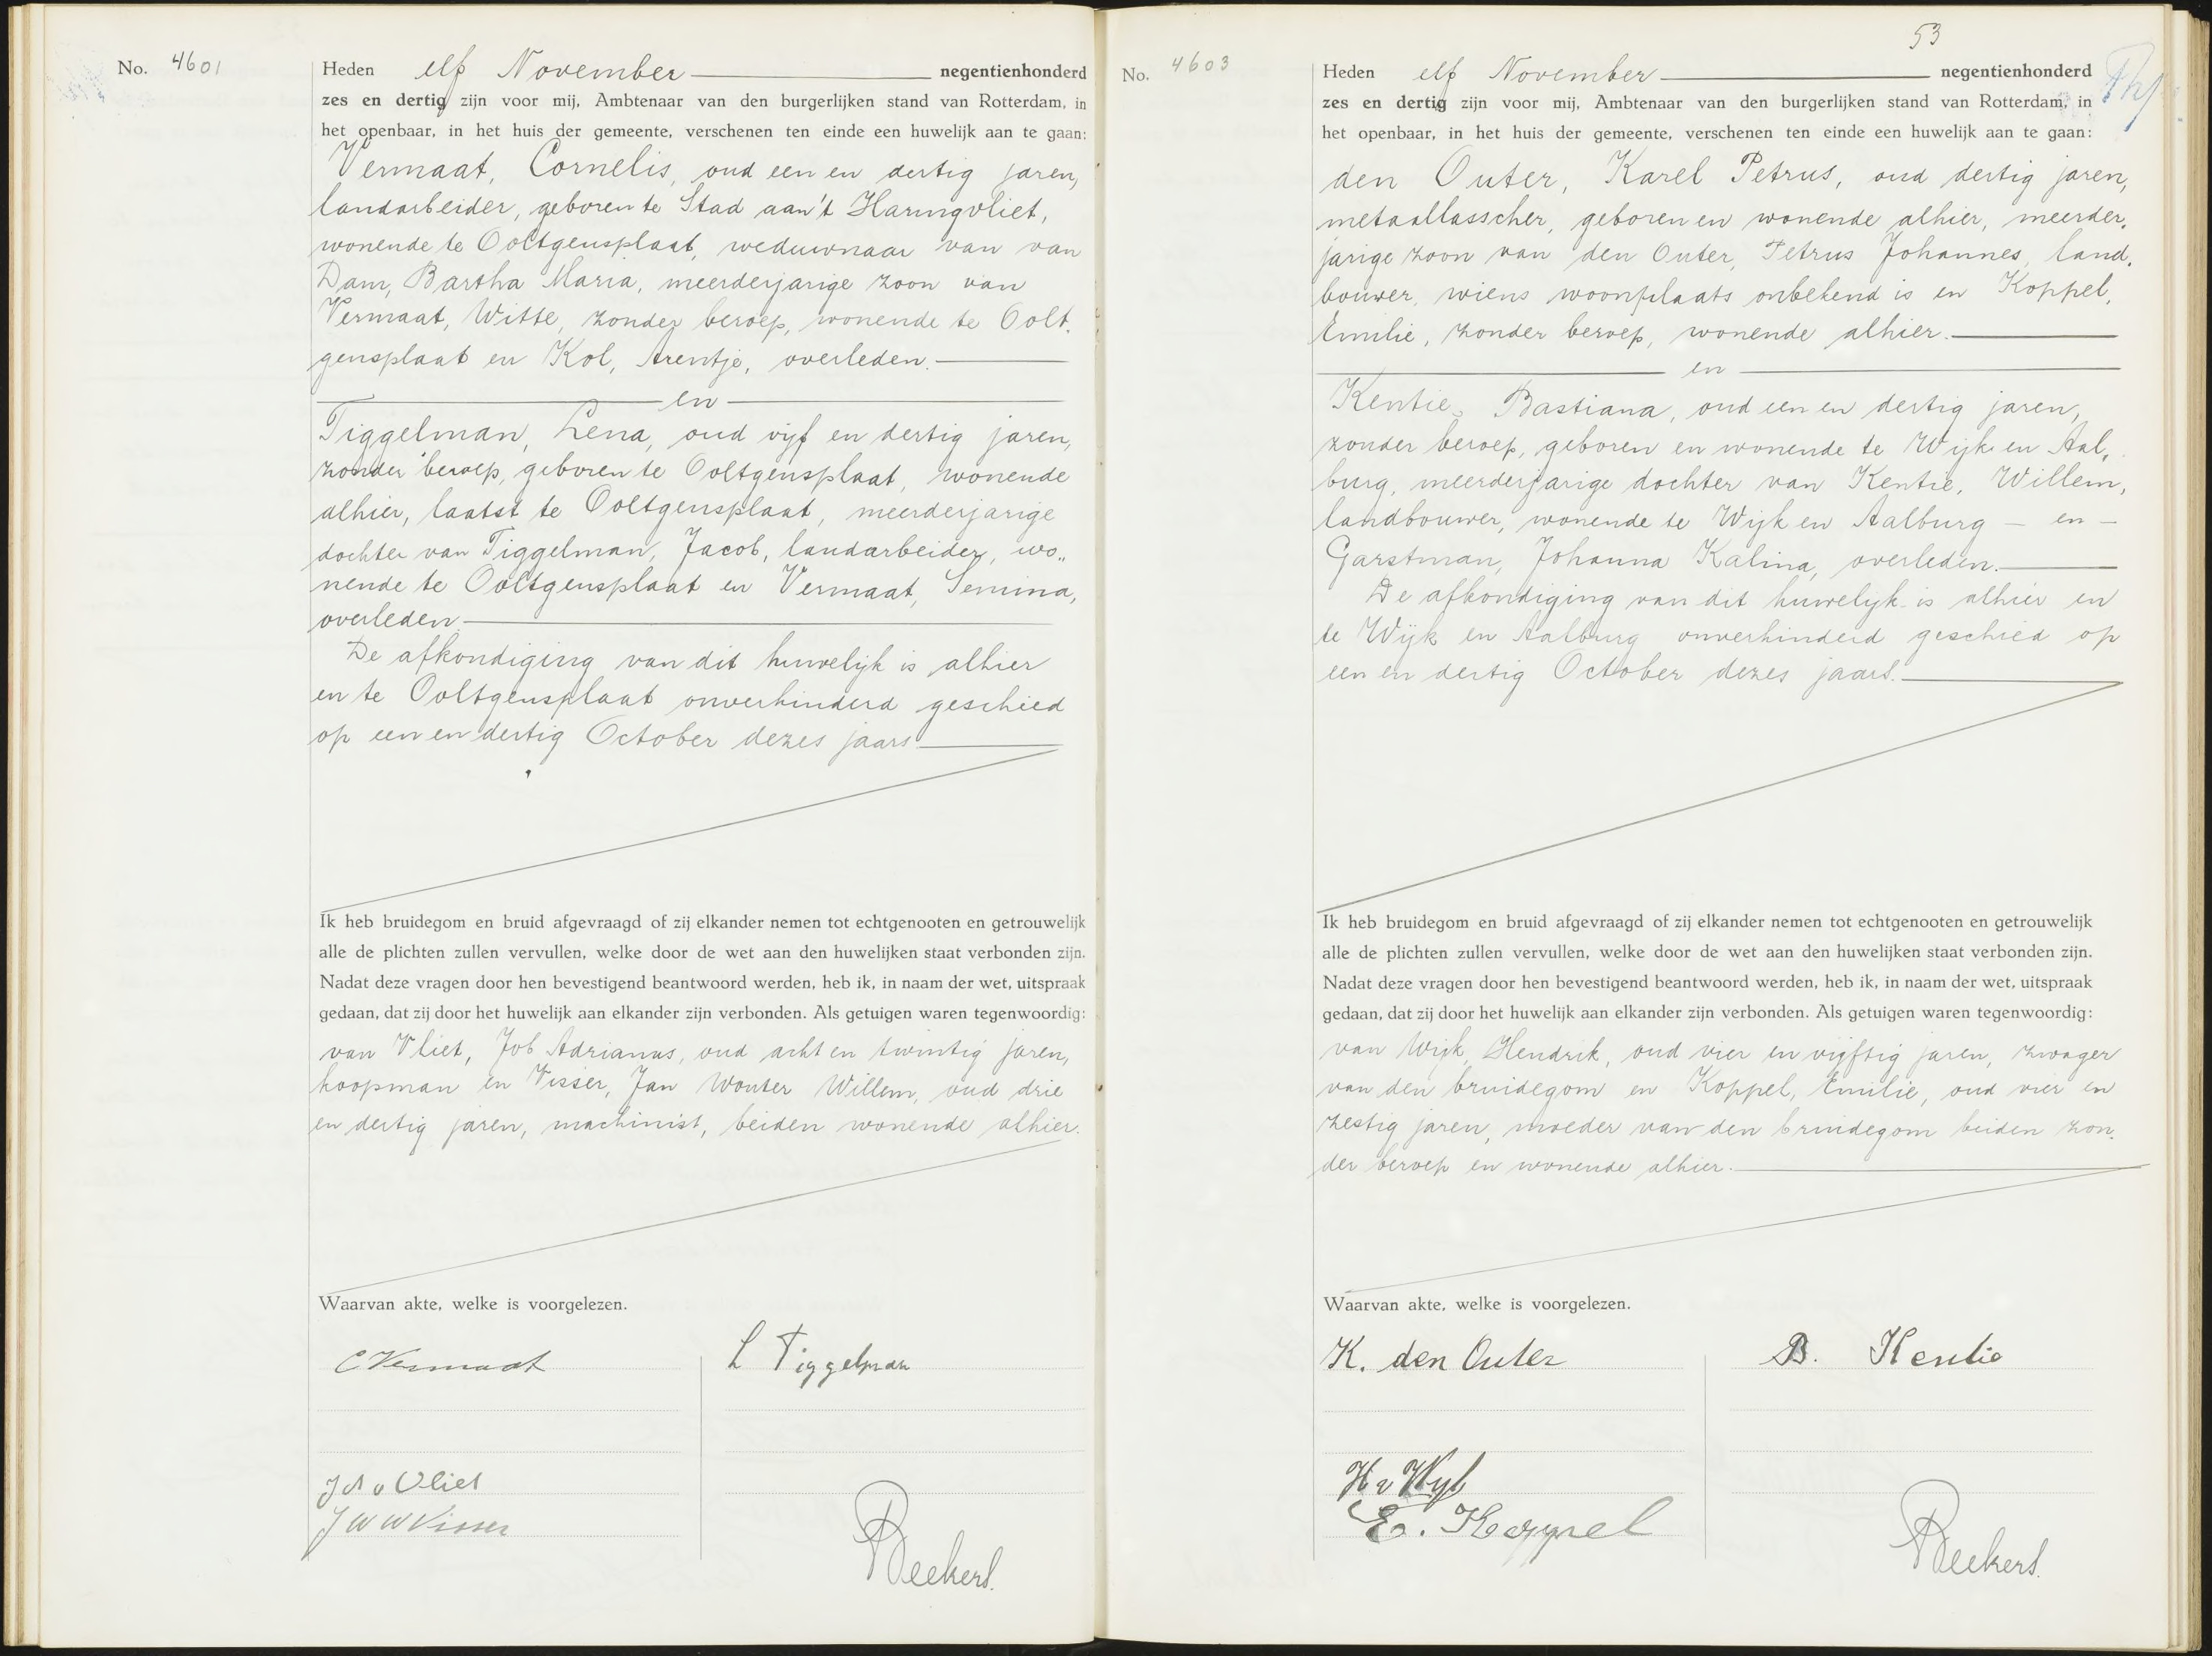 No. 4601
Heden elf November negentienhonderd
zes en dertig zijn voor mij, Ambtenaar van den burgerlijken stand van Rotterdam, in
het openbaar, in het huis der gemeente, verschenen ten einde een huwelijk aan te gaan:
Vermaat, Cornelis, oud een en dertig jaren,
landarbeider, geboren te Stad aan't Haringvliet,
wonende te Ooltgensplaat, weduwnaar van van
Dam, Bartha Maria, meerderjarige zoon van
Vermaat, Witte, zonder beroep, wonende te Oolt.
gensplaat en Kol, Arentje, overleden.
en
Tiggelman, Lena, oud vijf en dertig jaren,
zonder beroep, geboren te Ooltgensplaat, wonende
alhier, laatst te Ooltgensplaat, meerderjarige
dochter van Tiggelman, Jacob, landarbeider, wo„
nende te Ooltgensplaat en Vermaat, Semina,
overleden.
De afkondiging van dit huwelijk is alhier
en te Ooltgensplaat onverhinderd geschied
op een en dertig October dezes jaars.
Ik heb bruidegom en bruid afgevraagd of zij elkander nemen tot echtgenooten en getrouwelijk
alle de plichten zullen vervullen, welke door de wet aan den huwelijken staat verbonden zijn.
Nadat deze vragen door hen bevestigend beantwoord werden, heb ik, in naam der wet, uitspraak
gedaan, dat zij door het huwelijk aan elkander zijn verbonden. Als getuigen waren tegenwoordig:
van Vliet, Job Adrianus, oud acht en twintig jaren,
koopman en Visser, Jan Wouter Willem, oud drie
en dertig jaren, machinist, beiden wonende alhier.
Waarvan akte, welke is voorgelezen.
C Vermaat
L Tiggelman
J A v Vliet
J W W Visser
Beekers.
53
No. 4603
Heden elf November negentienhonderd
zes en dertig zijn voor mij, Ambtenaar van den burgerlijken stand van Rotterdam, in
het openbaar, in het huis der gemeente, verschenen ten einde een huwelijk aan te gaan:
den Outer, Karel Petrus, oud dertig jaren,
metaallasscher, geboren en wonende alhier, meerder.
jarige zoon van den Outer, Petrus Johannes, land.
bouwer, wiens woonplaats onbekend is en Koppel,
Emilie, zonder beroep, wonende alhier.
en
Kentie, Bastiana, oud een en dertig jaren,
zonder beroep, geboren en wonende te Wijk en Aal,
burg, meerderjarige dochter van Kentie, Willem,
landbouwer, wonende te Wijk en Aalburg – en –
Garstman, Johanna Kalina, overleden.
De afkondiging van dit huwelijk is alhier en
te Wijk en Aalburg onverhinderd geschied op
een en dertig October dezes jaars.
Ik heb bruidegom en bruid afgevraagd of zij elkander nemen tot echtgenooten en getrouwelijk
alle de plichten zullen vervullen, welke door de wet aan den huwelijken staat verbonden zijn.
Nadat deze vragen door hen bevestigend beantwoord werden, heb ik, in naam der wet, uitspraak
gedaan, dat zij door het huwelijk aan elkander zijn verbonden. Als getuigen waren tegenwoordig:
van Wijk, Hendrik, oud vier en vijftig jaren, zwager
van den bruidegom en Koppel, Emilie, oud vier en
zestig jaren, moeder van den bruidegom beiden zon.
der beroep en wonende alhier.
Waarvan akte, welke is voorgelezen.
K. den Outer
B. Kentie
H v Wyk
E. Koppel
Beekers.